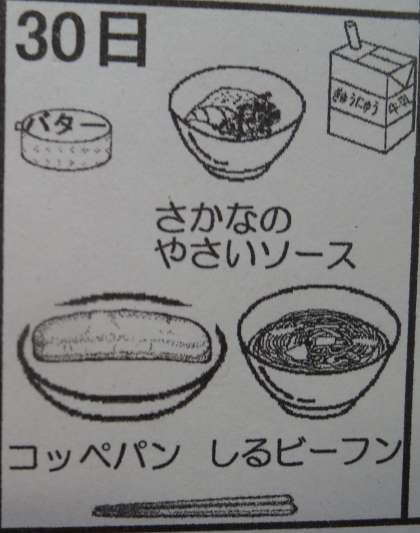 30日
バター
ぎゅうにゅう
さかなの
やさいソース
コッペパン
しるビーフン